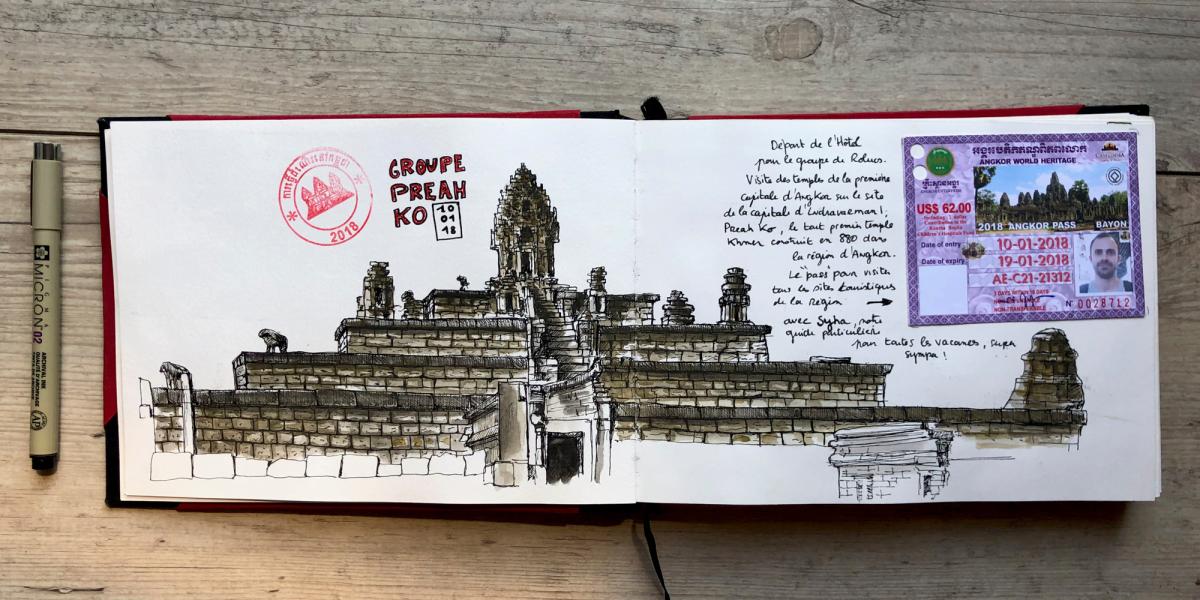 MICRON 02
ARCHIVAL INK
2018
GROUPE
PREAH
KO
10
01
18
Départ de l'Hotel
pour le groupe de Roluos.
Visite des temples de la première
capitale d'Angkor sur le site
de la capitale d'Indravarman 1,
Preah Ko, le tout premier temple
Khmer construit en 880 dans
la région d'Angkor.
Le "pass" pour visiter
tous les sites touristiques
de la région →
avec notre
guide particulier
pour toutes les vacances, super
sympa !
ANGKOR WORLD HERITAGE
US$ 62.00
2018 ANGKOR PASS BAYON
Date of entry 10-01-2018
Date of expiry 19-01-2018
AE-C21-21312
NON-TRANSFERABLE
N° 0028712